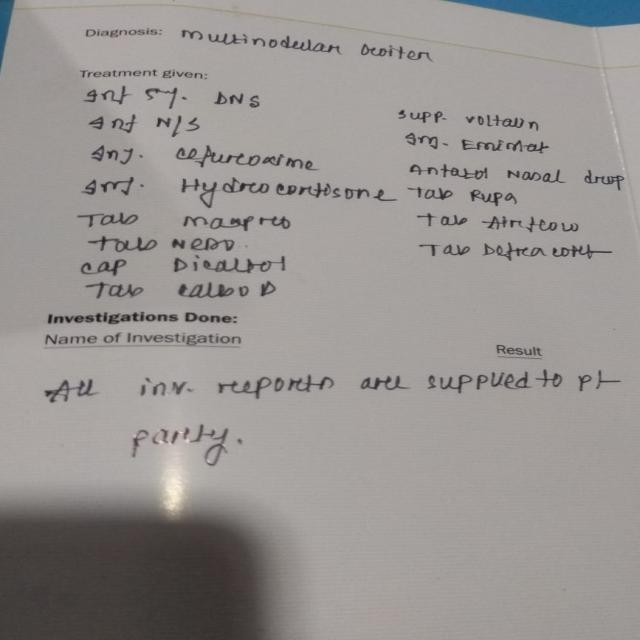 Diagnosis: Multinodular Goiter
Treatment given:
Inf 5%. DNS
Inf N/S
Inj. Cefuroxime
Inj. Hydrocortisone
Tab Maxpro
Tab
Cap Dicaltrol
Tab Calbo D
Supp. Voltalin
Inj. Emistat
Antazol Nasal drop
Tab Rupa
Tab Airflow
Tab Deflacort
Investigations Done:
Name of Investigation
Result
All inv. reports are supplied to pt
party.